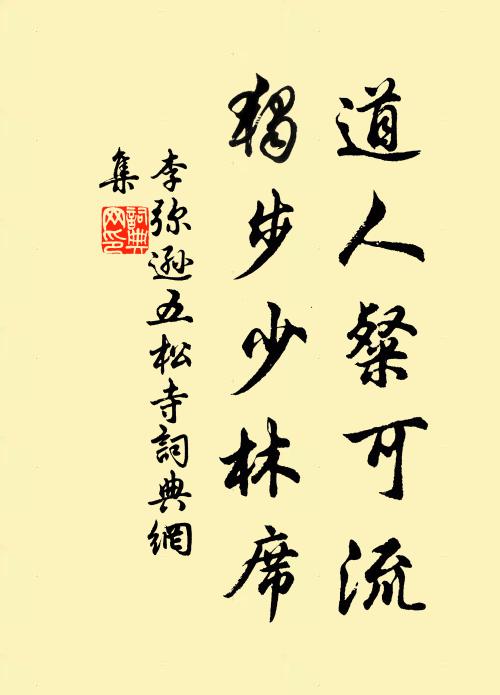 道人粲可流
獨步少林席
李弥遜五松寺詞典網
集
詞典
网印